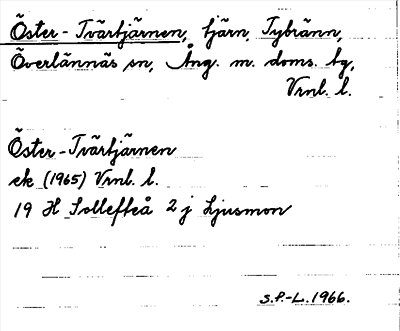 Öster-Tvärtjärnen, tjärn, Tybränn,
Överlännäs sn, Ång. m. doms. bg,
Vrnl. l.
Öster-Tvärtjärnen
ek (1965) Vrnl. l.
19 H Sollefteå 2 j Ljusmon
S.P.-L. 1966.